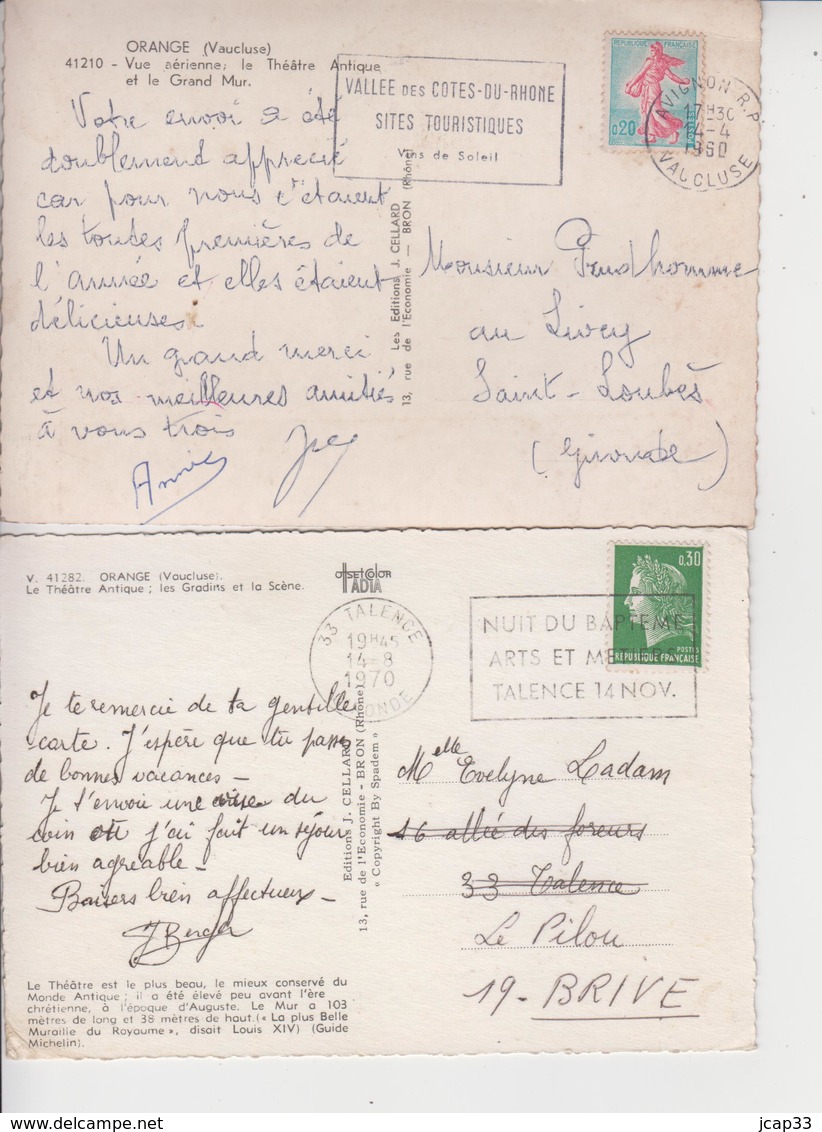 ORANGE (Vaucluse)
41210 - Vue aérienne; le Théâtre Antique
et le Grand Mur.
Votre envoi a été
doublement apprécié
car pour nous c'étaient
les toutes premières de
l'année et elles étaient
délicieuses.
Un grand merci
et nos meilleures amitiés
à vous trois
Annie
VALLEE DES COTES-DU-RHONE
SITES TOURISTIQUES
Vins de Soleil
REPUBLIQUE FRANÇAISE
0,20
POSTES
AVIGNON R.P.
17H30
4-4
1960
VAUCLUSE
Les Editions J. CELLARD
13, rue de l'Economie — BRON (Rhône)
Monsieur Prudhomme
au Livey
Saint-Loubès
(Gironde)
V. 41282. ORANGE (Vaucluse).
Le Théâtre Antique; les Gradins et la Scène.
offsetcolor
IADIA
33 TALENCE
19H45
14-8
1970
GIRONDE
NUIT DU BAPTEME
ARTS ET METIERS
TALENCE 14 NOV.
0,30
POSTES
REPUBLIQUE FRANÇAISE
Je te remercie de ta gentille
carte. J'espère que tu passes
de bonnes vacances -
Je t'envoie une vue du
coin où j'ai fait un séjour
bien agréable -
Baisers bien affectueux -
J Berger
Editions J. CELLARD
13, rue de l'Economie - BRON (Rhône)
« Copyright By Spadem »
Melle Evelyne Ladam
16 allée des foreurs
33 Talence
Le Pilou
19 - BRIVE
Le Théâtre est le plus beau, le mieux conservé du
Monde Antique; il a été élevé peu avant l'ère
chrétienne, à l'époque d'Auguste. Le Mur a 103
mètres de long et 38 mètres de haut.(« La plus Belle
Muraille du Royaume », disait Louis XIV) (Guide
Michelin).
jcap33